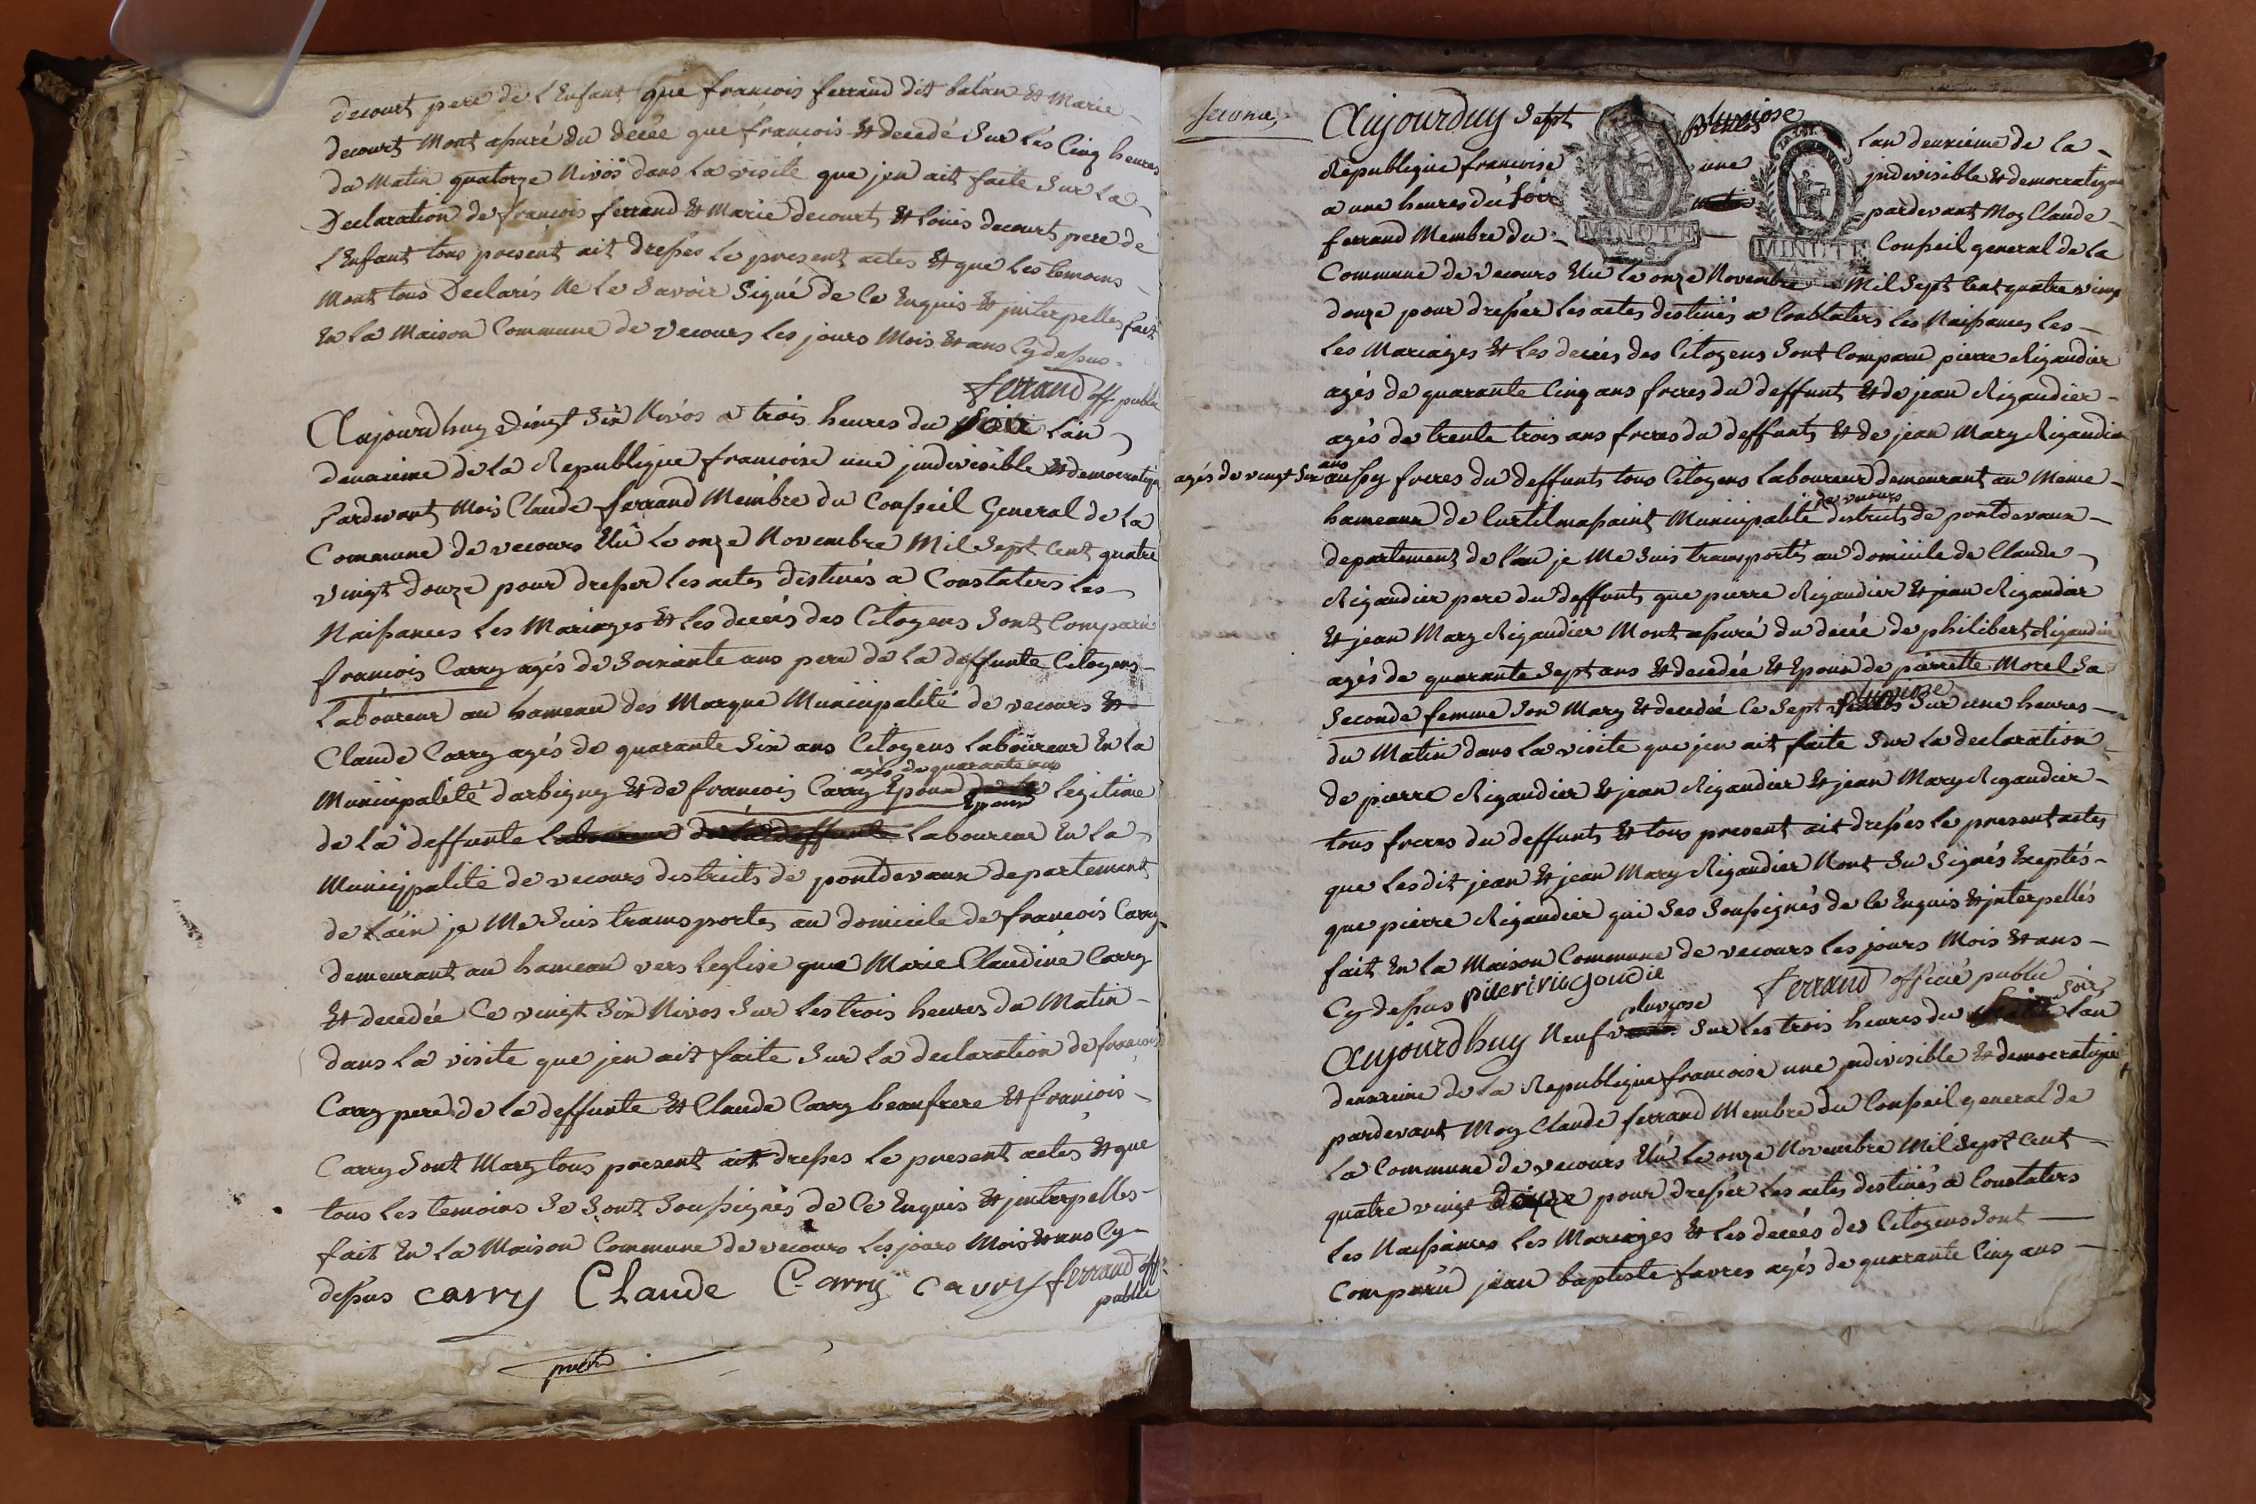 decourt pere de l'Enfant que francois ferrand dit balan & Marie
decourt Mont assuré du decée que francois & decedé sur les Cinq heures
du Matin quatorze Nivos dans la visite que jen ait faite sur la
Declaration de francois ferrand & Marie decourt & louis decourt pere de
l'Enfant tous present ait dresses le present actes & que les temoins
Mont tous Declarés Ne le savoir signé de Ce Enquis & jnterpelles fait
En la Maison Commune de vecours les jours Mois & ans Cy dessus
ferrand off public
Aujourdhuy vingt Six Nivos a trois heures du soir lan
deuxieme de la Republique francoise une jndivisible & democratique
Pardevant Mois Claude ferrand Membre du Conseil General de la
Commune de vecours Elû le onze Novembre Mil Sept Cent quatre
vingt douze pour dresser les actes destinés a Constaters les
Naissances les Mariages & les decées des Citoyens sont Comparu
francois Carry agés de soixante ans pere de la deffunte Citoyens
laboureur au hameau des Marque Municipalité de vecours &
Claude Carry agés de quarante Six ans Citoyens laboureur En la
agés de quarante ans
Municipalité darbigny & de francois Carry Epoux legitime
Epoux
de la deffunte laboureur de la deffunte laboureur En la
Municipalité de vecours districts de pontdevaux departement
de l'ain je Me suis transportés au domicile de francois Carry
demeurant au hameau vers leglise que Marie Claudine Carry
& decedée Ce vingt Six Nivos sur les trois heures du Matin
dans la visite que jen ait faite sur la declaration de francois
Carry pere de la deffunte & Claude Carry beaufrere & francois
Carry sont Mary tous present ait dresses le present actes & que
tous les temoins se sont soussignés de Ce Enquis & jnterpelles
fait En la Maison Commune de vecours les jours Mois & ans Cy
dessus carry Claude Carry cavry ferrand off
public
Aujourduy Sept pluviose lan deuxieme de la
Republique francoise une jndivisible & democratique
a une heures du soir matin pardevant Moy Claude
ferrand Membre du Conseil general de la
MINUTE
MINUTE
Commune de vecours Elu le onze Novembre Mil Sept Cent quatre vingt
douze pour dresser les actes destinés a Constaters les Naissances les
les Mariages & les decées des Citoyens sont Comparu pierre Rigaudier
agés de quarante Cinq ans freres du deffunt & de jean Rigaudier
agés de trente trois ans freres du deffunts & de jean Mary Rigaudier
agés de vingt Six ans aussy freres du deffunts tous Citoyens laboureur demeurant au Meme
de vecours
hameaux de Curtilmassaint Municipalité districts de pontdevaux
departement de lain je Me suis transportés au domicile de Claude
Rigaudier pere du deffunts que pierre Rigaudier & jean Rigaudier
& jean Mary Rigaudier Mont assuré du decée de philibert Rigaudier
agés de quarante Sept ans & decedée & Epoux de pierrette Morel sa
pluviose
seconde femme son Mary & decedée Ce Sept sur une heures
du Matin dans la visite que jen ait faite sur la declaration
de pierre Rigaudier & jean Rigaudier & jean Mary Rigaudier
tous freres du deffunts & tous present ait dresses le present actes
que lesdit jean & jean Mary Rigaudier Nont su signés Exeptés
que pierre Rigaudier qui ses soussignés de Ce Enquis & jnterpellés
fait En la Maison Commune de vecours les jours Mois & ans
Cy dessus ferrand officié public
pluviose soir
Aujourdhuy Neuf sur les trois heures du lan
deuxieme de la Republique francoise une jndivisible & democratique
pardevant Moy Claude ferrand Membre du Conseil general de
la Commune de vecours Elû le onze Novembre Mil Sept Cent
quatre vingt douze pour dresser les actes destinés a Constaters
les Naissances les Mariages & les decées des Citoyens sont
Comparû jean baptiste favres agés de quarante Cinq ans